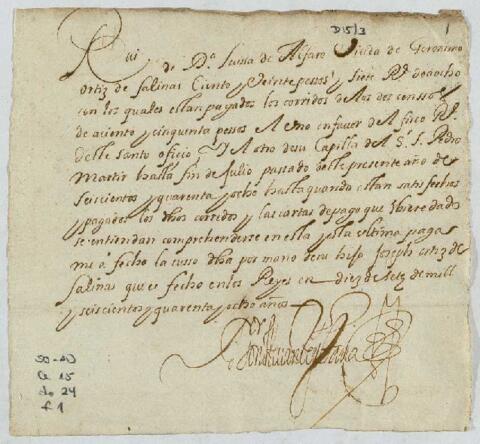 D15/3
1
Rui de Da Luisa de Alfaro Viuda de Geronimo
ortiz de salinas ciento y Veinte pesos y siete Rs de aocho
con los quales estan pagados los corridos de los dos censsos
de aciento y cinquenta pesos el Uno en fauor del fisco Rl
deste santo oficio y el otro de su Capilla del Sr S. Pedro
Martir hasta fin de Julio passado deste presente año de
seiscientos y quarenta y ocho hasta quando estan satisfechos
y pagados los dhos corridos y las cartas de pago que Ubiere dado
se entiendan comprehenderse en esta y esta Ultima paga
me á fecho la susso dha por mano de su hijo Joseph ortiz de
salinas que es fecho en los Reyes en diez de set. de mill
y seiscientos y quarenta y ocho años
Don Juan
SO-
Ca 15
do 24
f 1